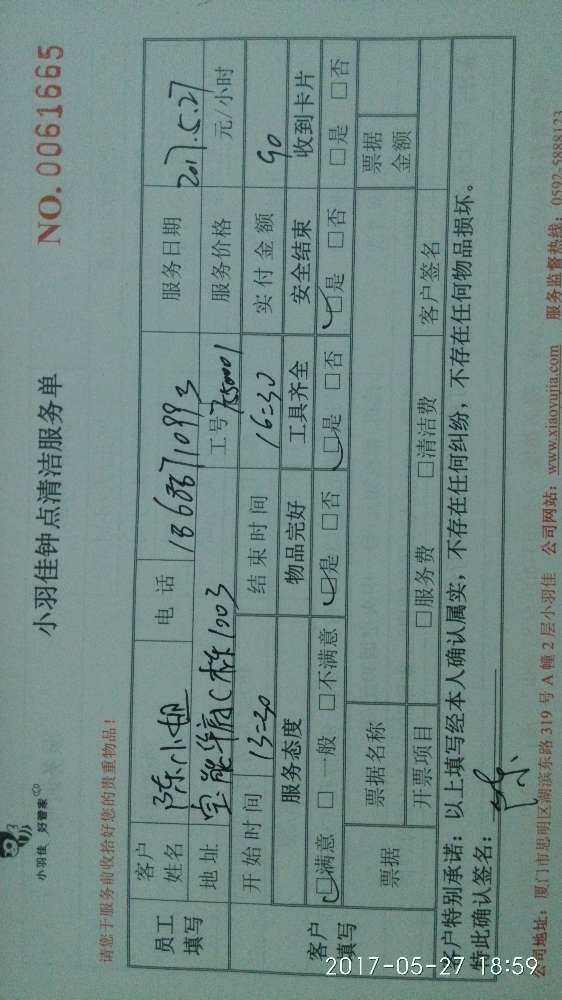 小羽佳 好管家
小羽佳钟点清洁服务单
NO. 0061665
请您于服务前收拾好您的贵重物品！
员工填写 客户姓名 陈小姐 电话 服务日期 2017.5.27
地址 C栋1003 工号 服务价格 元/小时
客户填写 开始时间 13=30 结束时间 16=30 实付金额 90
服务态度 物品完好 工具齐全 安全结束 收到卡片
□满意 □一般 □不满意 □是 □否 □是 □否 □是 □否 □是 □否
票据 票据名称 票据金额
开票项目 □服务费 □清洁费 客户签名
客户特别承诺：以上填写经本人确认属实，不存在任何纠纷，不存在任何物品损坏。
特此确认签名：陈
公司地址：厦门市思明区湖滨东路 319 号 A 幢 2 层小羽佳 公司网站：www.xiaoyujia.com 服务监督热线：0592-5888123
2017-05-27 18:59